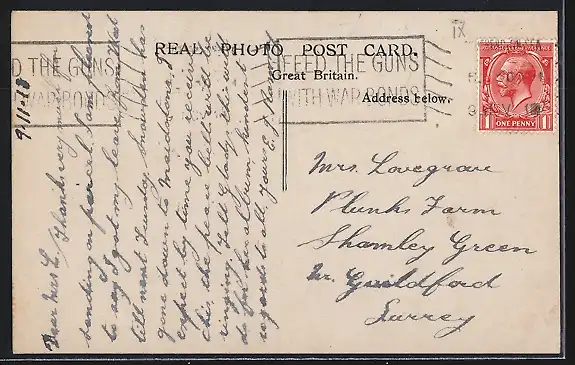 REAL PHOTO POST CARD.
Great Britain.
Address below.
FEED THE GUNS
WITH WAR BONDS
D THE GUNS
WAR BONDS
ONE PENNY
1 1
9-11-18
Dear Mrs L, Thanks very much for
sending on parcel. I am pleased
to say I got my leave from that
till next Tuesday. Marden has
gone down to Maidstone. I
expect by time you receive
this the peace bells will be
ringing. Tell Gladys this will
do for her album. Kindest
regards to all, yours
Mrs. Lovegrove
Plunks Farm
Shamley Green
Nr. Guildford
Surrey